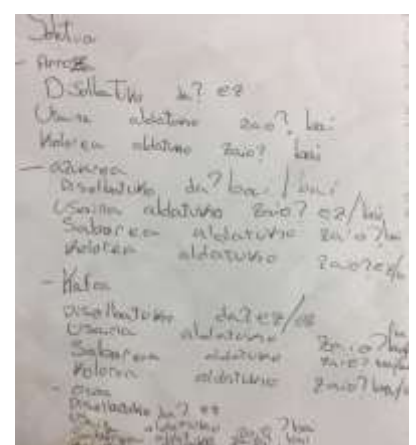 - Arroza
Disolbatuko da? ez
Usaina aldatuko zaio? bai
Kolorea aldatuko zaio? bai
- azukrea
Disolbatuko da? bai / bai
Usaina aldatuko zaio? ez/bai
Saborea aldatuko zaio?
Kolorea aldatuko zaio? ez/
- Kafea
Disolbatuko da? ez/ez
Usaina aldatuko zaio?
Saborea aldatuko zaio?
Kolorea aldatuko zaio? bai/
-
Disolbatuko da? ez
Usaina aldatuko zaio? bai
aldatuko zaio? bai